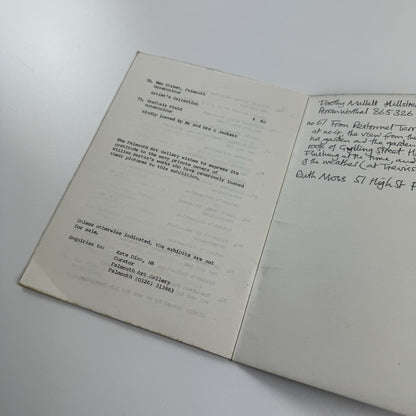 78. New Street, Falmouth
Watercolour
Artist's Collection
79. Cornfield
Watercolour
Kindly loaned by Mr and Mrs C Jackett
£ 80
The Falmouth Art Gallery wishes to express its
gratitude to the many private owners of
works who have generously loaned
their pictures to this exhibition.
Unless otherwise indicated, the exhibits are not
for sale.
Enquiries to:
Kate Dinn, MA
Curator
Falmouth Art Gallery
Falmouth (0326) 313863
Mallett
Perranworthal 865326
no 67 From Restormel Terr
at no 4. the view from the
his garden and the garden
roof of Gyllyng Street
Flushing at the time, and
the weather (at
Ruth Moss 51 High St F